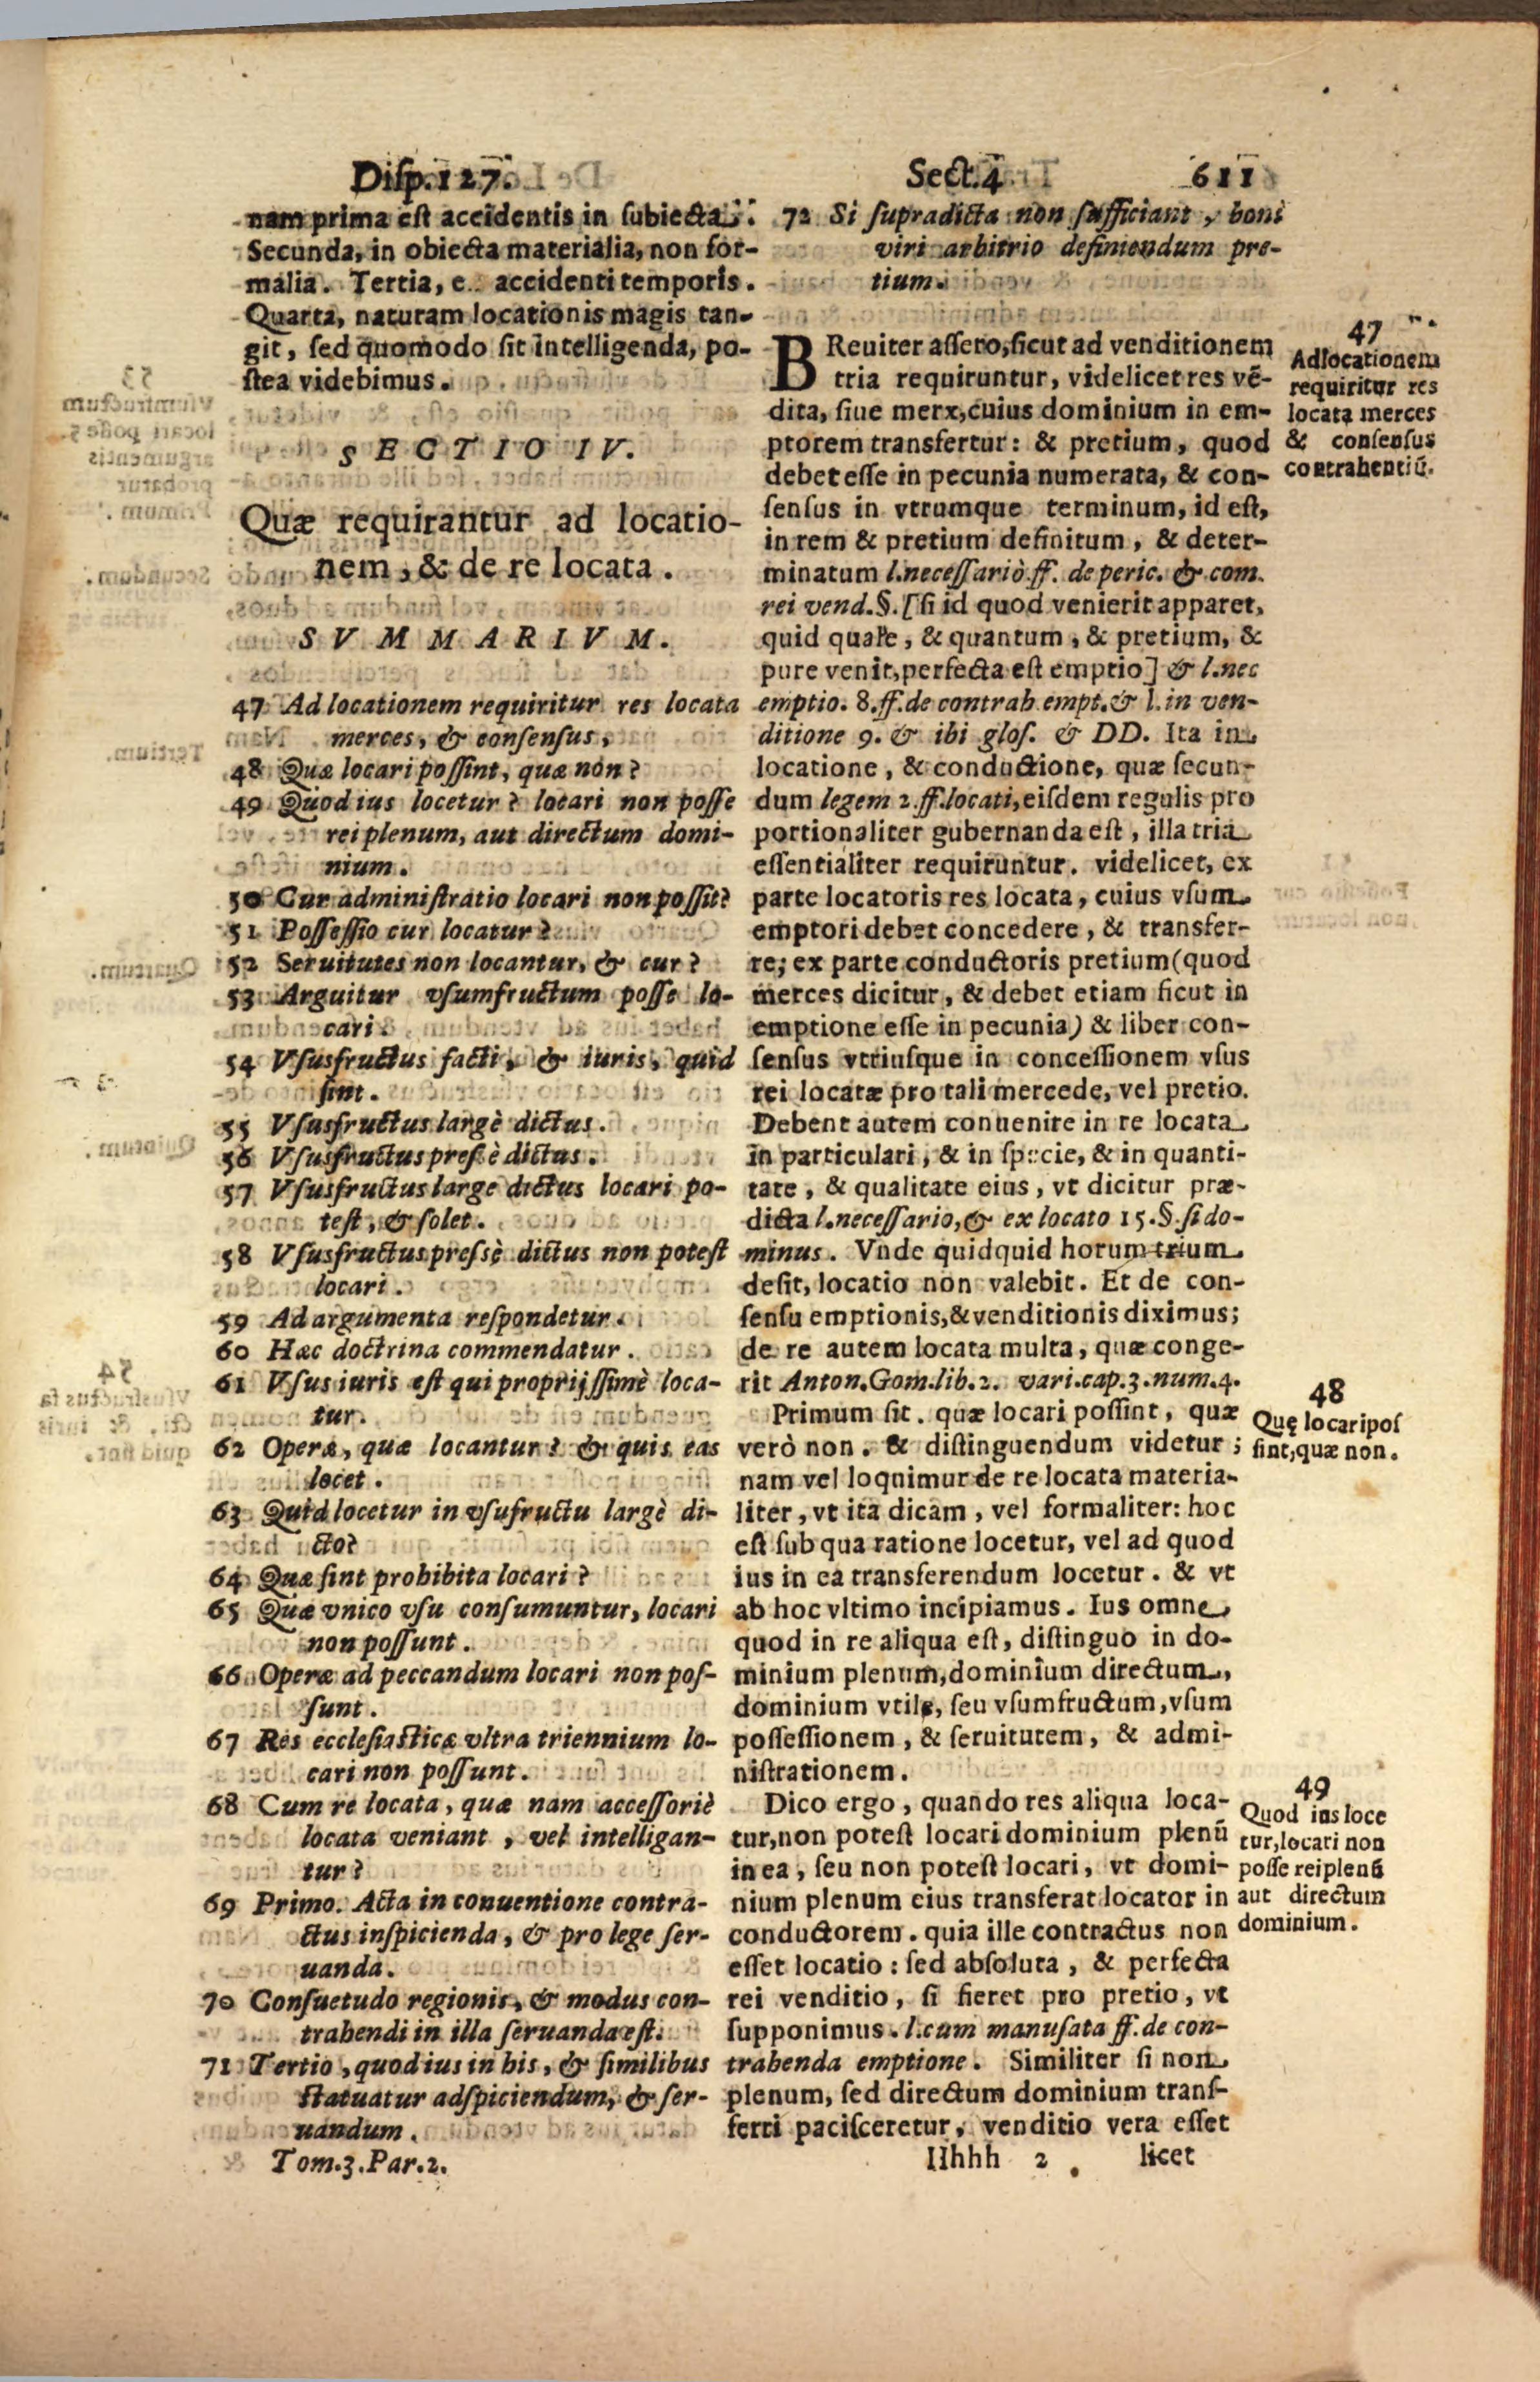 Disp.127. Sect.4 611
nam prima est accidentis in subiecta.
Secunda, in obiecta materialia, non for-
malia. Tertia, e accidenti temporis.
Quarta, naturam locationis magis tan-
git, sed quomodo sit intelligenda, po-
stea videbimus.
SECTIO IV.
Quæ requirantur ad locatio-
nem, & de re locata.
SVMMARIVM.
47 Ad locationem requiritur res locata
merces, & consensus,
48 Quæ locari possint, quæ non?
49 Quod ius locetur? locari non posse
rei plenum, aut directum domi-
nium.
50 Cur administratio locari non possit?
51 Possessio cur locatur?
52 Seruitutes non locantur, & cur?
53 Arguitur vsumfructum posse lo-
cari.
54 Vsusfructus facti, & iuris, quid
sint.
55 Vsusfructus largè dictus.
56 Vsusfructus presè dictus.
57 Vsusfructus large dictus locari po-
test, & solet.
58 Vsusfructus pressè dictus non potest
locari.
59 Ad argumenta respondetur.
60 Hæc doctrina commendatur.
61 Vsus iuris est qui proprijssimè loca-
tur.
62 Operæ, quæ locantur? & quis eas
locet.
63 Quid locetur in vsufructu largè di-
cto?
64 Quæ sint prohibita locari?
65 Quæ vnico vsu consumuntur, locari
non possunt.
66 Operæ ad peccandum locari non pos-
sunt.
67 Res ecclesiasticæ vltra triennium lo-
cari non possunt.
68 Cum re locata, quæ nam accessoriè
locata veniant, vel intelligan-
tur?
69 Primo. Acta in conuentione contra-
ctus inspicienda, & pro lege ser-
uanda.
70 Consuetudo regionis, & modus con-
trahendi in illa seruanda est.
71 Tertio, quod ius in his, & similibus
statuatur adspiciendum, & ser-
uandum.
Tom.3.Par.2.
72 Si supradicta non sufficiant, boni
viri arbitrio definiendum pre-
tium.
BReuiter assero, sicut ad venditionem
tria requiruntur, videlicet res vē-
dita, siue merx, cuius dominium in em-
ptorem transfertur: & pretium, quod
debet esse in pecunia numerata, & con-
sensus in vtrumque terminum, id est,
in rem & pretium definitum, & deter-
minatum l.necessariò ff. de peric. & com.
rei vend.§.[si id quod venierit apparet,
quid quale, & quantum, & pretium, &
pure venit, perfecta est emptio] & l.nec
emptio. 8.ff.de contrah.empt.& l. in ven-
ditione 9. & ibi glos. & DD. Ita in
locatione, & conductione, quæ secun-
dum legem 2.ff.locati, eisdem regulis pro
portionaliter gubernanda est, illa tria
essentialiter requiruntur. videlicet, ex
parte locatoris res locata, cuius vsum
emptori debet concedere, & transfer-
re; ex parte conductoris pretium (quod
merces dicitur, & debet etiam sicut in
emptione esse in pecunia) & liber con-
sensus vtriusque in concessionem vsus
rei locatæ pro tali mercede, vel pretio.
Debent autem conuenire in re locata
in particulari, & in specie, & in quanti-
tate, & qualitate eius, vt dicitur præ-
dicta l.necessario, & ex locato 15.§.si do-
minus. Vnde quidquid horum trium
desit, locatio non valebit. Et de con-
sensu emptionis, & venditionis diximus;
de re autem locata multa, quæ conge-
rit Anton.Gom.lib.2. vari.cap.3.num.4.
Primum sit. quæ locari possint, quæ
verò non. & distinguendum videtur;
nam vel loquimur de re locata materia-
liter, vt ita dicam, vel formaliter: hoc
est sub qua ratione locetur, vel ad quod
ius in ea transferendum locetur. & vt
ab hoc vltimo incipiamus. Ius omne,
quod in re aliqua est, distinguo in do-
minium plenum, dominium directum,
dominium vtile, seu vsumfructum, vsum
possessionem, & seruitutem, & admi-
nistrationem.
Dico ergo, quando res aliqua loca-
tur, non potest locari dominium plenū
in ea, seu non potest locari, vt domi-
nium plenum eius transferat locator in
conductorem. quia ille contractus non
esset locatio: sed absoluta, & perfecta
rei venditio, si fieret pro pretio, vt
supponimus. l.cum manusata ff. de con-
trahenda emptione. Similiter si non
plenum, sed directum dominium trans-
ferri pacisceretur, venditio vera esset
IIhhh 2 licet
47
Ad locationem
requiritur res
locata merces
& consensus
contrahentiū.
48
Quę locari pos
sint, quæ non.
49
Quod ius loce
tur, locari non
posse rei plenū
aut directum
dominium.